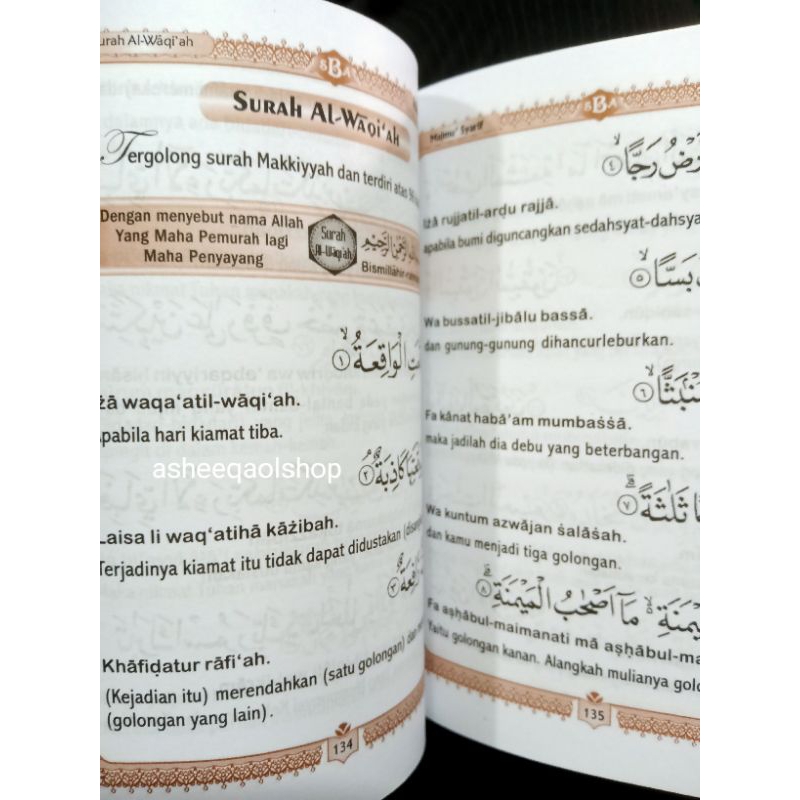 urah Al-Wāqi'ah
SBA
SURAH AL-WĀQI'AH
Tergolong surah Makkiyyah dan terdiri atas
Dengan menyebut nama Allah
Yang Maha Pemurah lagi
Maha Penyayang
Surah
Al-Wāqi'ah
الرَّحْمٰنِ الرَّحِيْمِ
Bismillāhir
الْوَاقِعَةُۙ ١
żā waqa'atil-wāqi'ah.
pabila hari kiamat tiba.
asheeqaolshop
كَاذِبَةٌۘ ٢
Laisa li waq'atihā kāżibah.
Terjadinya kiamat itu tidak dapat didustakan
٣
Khāfiḍatur rāfi'ah.
(Kejadian itu) merendahkan (satu golongan) dan
(golongan yang lain).
134
SBA
Majmu' Syarif
رَجًّاۙ ٤
Iżā rujjatil-arḍu rajjā.
apabila bumi diguncangkan sedahsyat-dahsya
بَسًّاۙ ٥
Wa bussatil-jibālu bassā.
dan gunung-gunung dihancurleburkan.
مُّنْۢبَثًّاۙ ٦
Fa kānat habā'am mumbaṡṡā.
maka jadilah dia debu yang beterbangan.
ثَلٰثَةًۗ ٧
Wa kuntum azwājan ṡalāṡah.
dan kamu menjadi tiga golongan.
مَآ اَصْحٰبُ الْمَيْمَنَةِۗ ٨
Fa aṣḥābul-maimanati mā aṣḥābul-ma
Yaitu golongan kanan. Alangkah mulianya golo
135